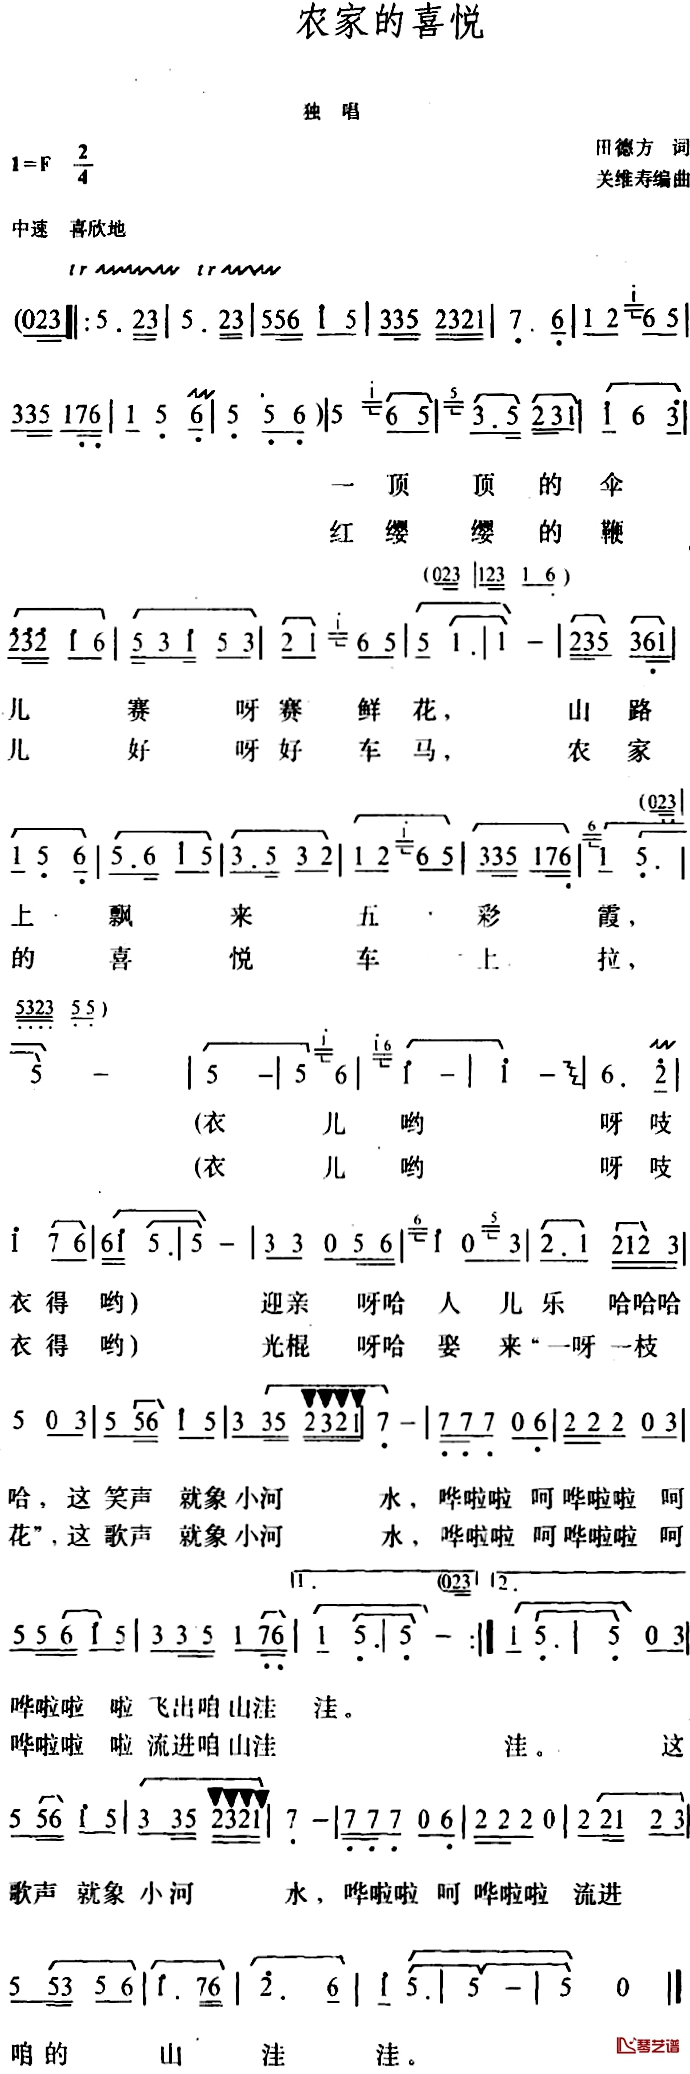 农家的喜悦
独 唱
1=F 2/4
田德方 词
关维寿编曲
中速 喜欣地
tr tr
(023‖: 5 . 23 | 5 . 23 | 556 i 5 | 335 2321 | 7 . 6 | 1 2 i 6 5 |
335 176 | 1 5 6 | 5 5 6 ) | 5 i 6 5 | 5 3.5 231 | i 6 3 |
一 顶 顶 的 伞
红 缨 缨 的 鞭
(023 | 123 1 6 )
232 i 6 | 5 3 i 5 3 | 2 1 i 6 5 | 5 1 . | 1 - | 235 361 |
儿 赛 呀 赛 鲜 花, 山 路
儿 好 呀 好 车 马, 农 家
(023 |
1 5 6 | 5.6 i 5 | 3.5 3 2 | 1 2 i 6 5 | 335 176 | 6 1 5 . |
上 飘 来 五 彩 霞,
的 喜 悦 车 上 拉,
5323 5 5 )
5 - | 5 - | 5 i 6 | i6 i - | i - | 6 . 2 |
(衣 儿 哟 呀 吱
(衣 儿 哟 呀 吱
i 7 6 | 6i 5 . | 5 - | 3 3 0 5 6 | 6 i 0 5 3 | 2 . 1 212 3 |
衣 得 哟) 迎亲 呀哈 人 儿 乐 哈哈哈
衣 得 哟) 光棍 呀哈 娶 来 “一呀 一枝
5 0 3 | 5 56 i 5 | 3 35 2321 | 7 - | 7 7 7 0 6 | 2 2 2 0 3 |
哈, 这 笑声 就象 小河 水, 哗啦啦 呵 哗啦啦 呵
花”, 这 歌声 就象 小河 水, 哗啦啦 呵 哗啦啦 呵
1. (023 | 2.
5 5 6 i 5 | 3 3 5 1 76 | 1 5 . | 5 - :‖ 1 5 . | 5 0 3 |
哗啦啦 啦 飞出咱 山洼 洼。
哗啦啦 啦 流进咱 山洼 洼。 这
5 56 i 5 | 3 35 2321 | 7 - | 7 7 7 0 6 | 2 2 2 0 | 2 21 2 3 |
歌声 就象 小河 水, 哗啦啦 呵 哗啦啦 流进
5 53 5 6 | i . 76 | 2 . 6 | i 5 . | 5 - | 5 0 ‖
咱的 山 洼 洼。
琴艺谱